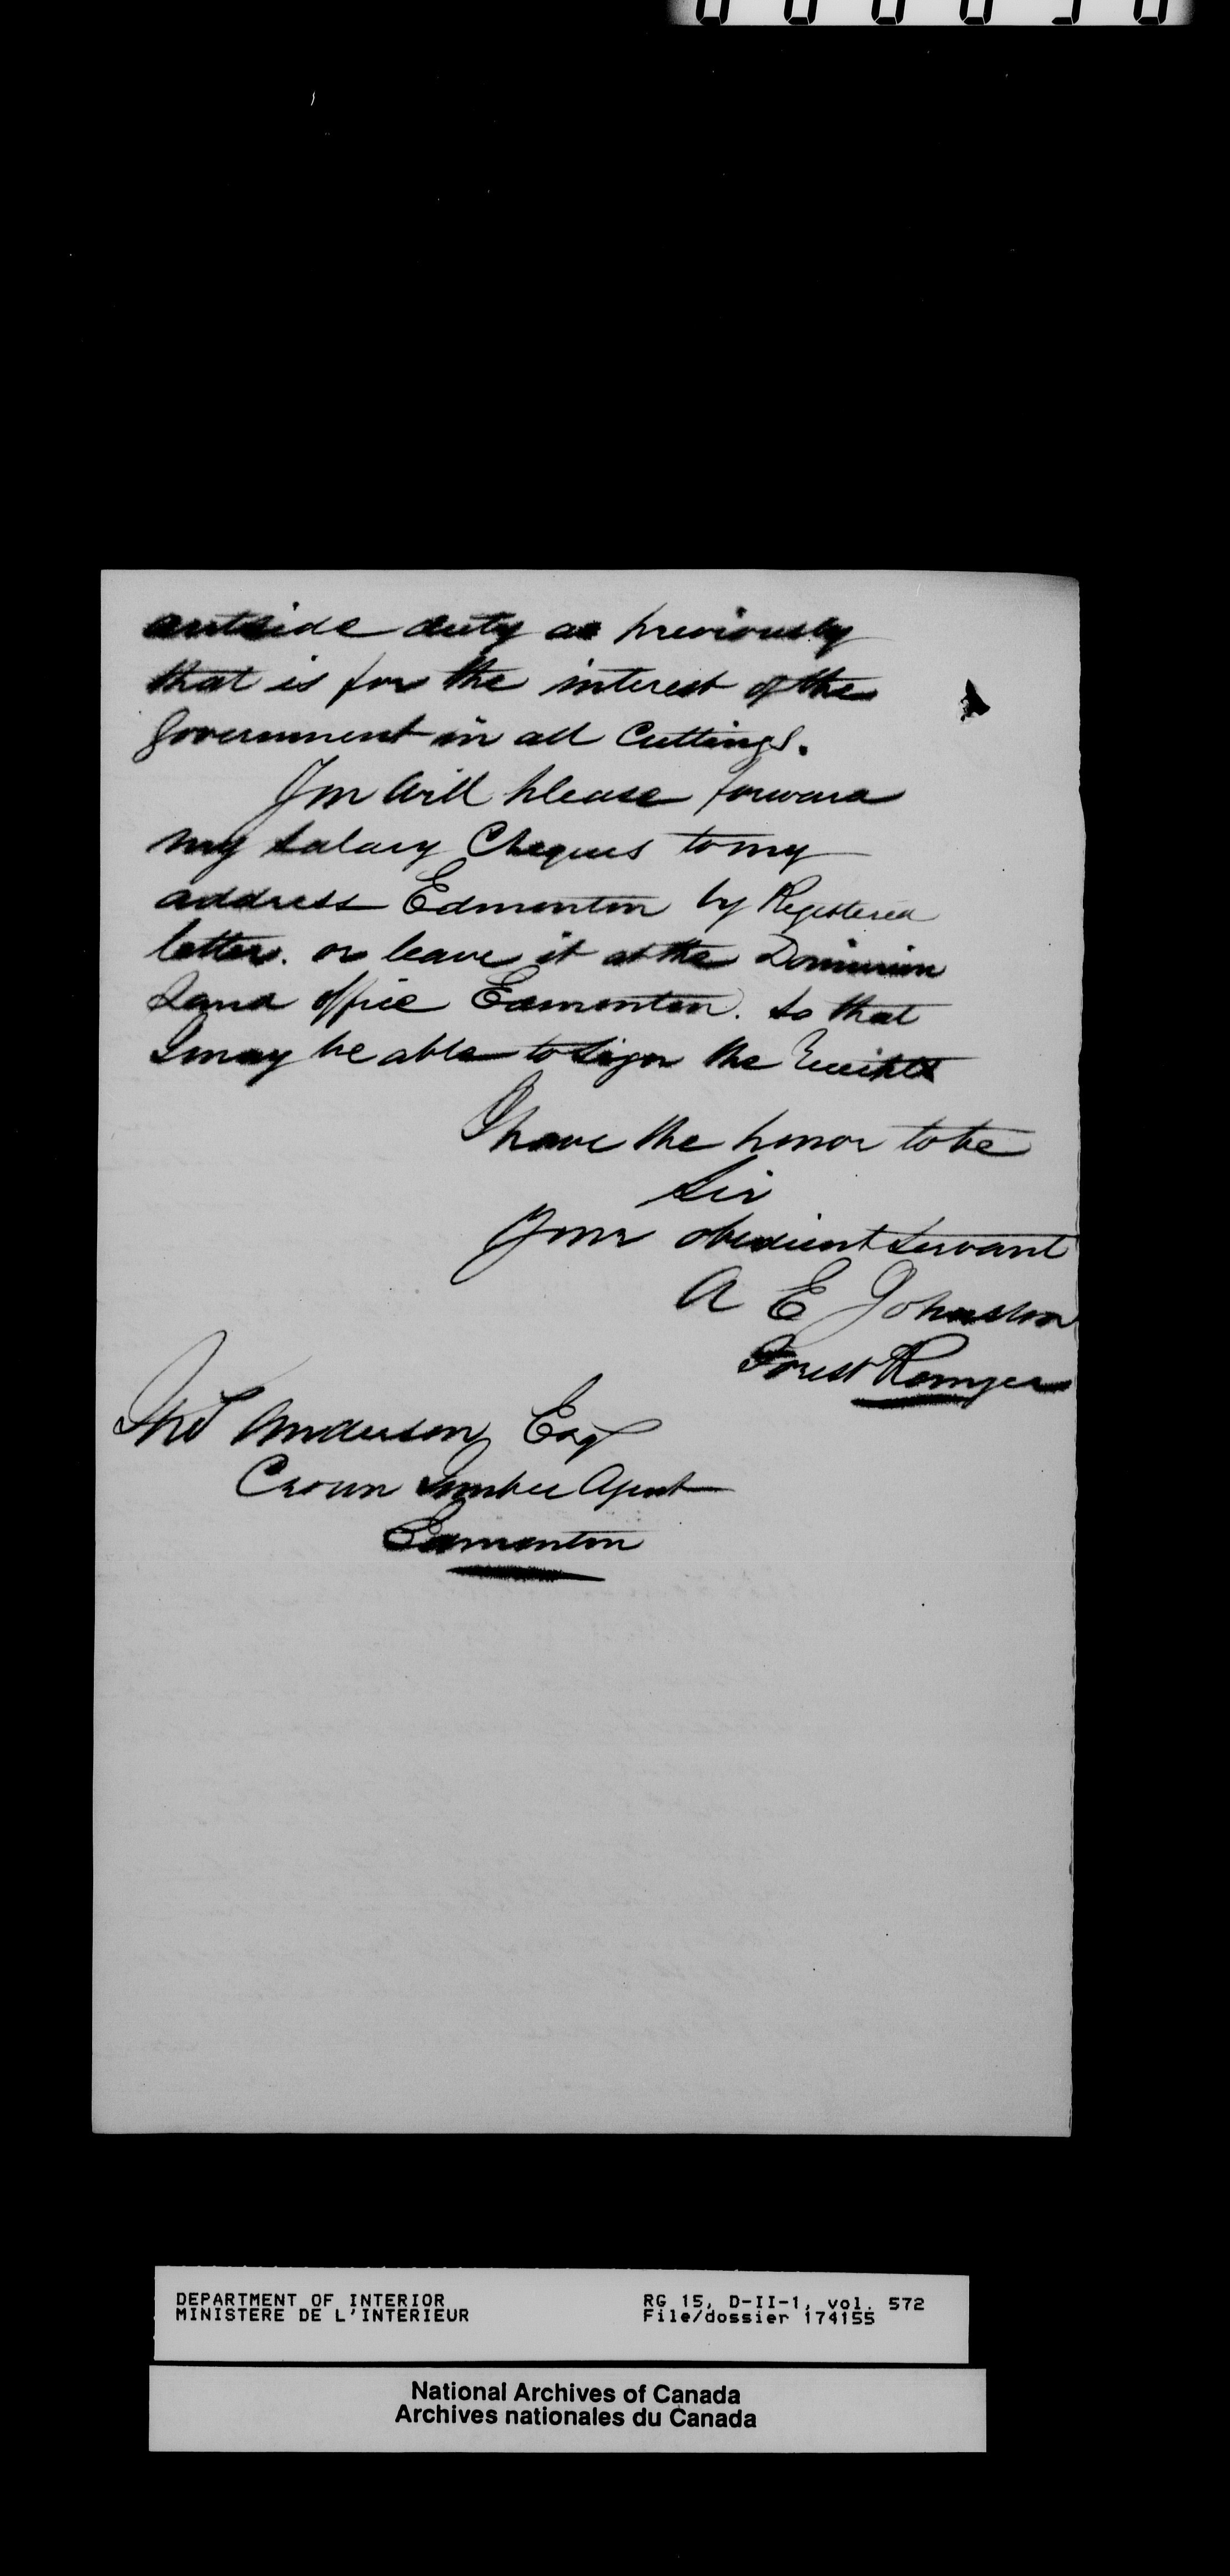 outside duty as previously
that is for the interest of the
Government in all Cuttings.
You will please forward
my salary Cheques to my
address Edmonton by Registered
letter. or leave it at the Dominion
Land office Edmonton. so that
I may be able to sign the Receipts
I have the honor to be
Sir
Your obedient servant
A E Johnston
Forest Ranger
Thos Anderson Esq
Crown Timber Agent
Edmonton
DEPARTMENT OF INTERIOR
MINISTERE DE L'INTERIEUR
RG 15, D-II-1, vol. 572
File/dossier 174155
National Archives of Canada
Archives nationales du Canada